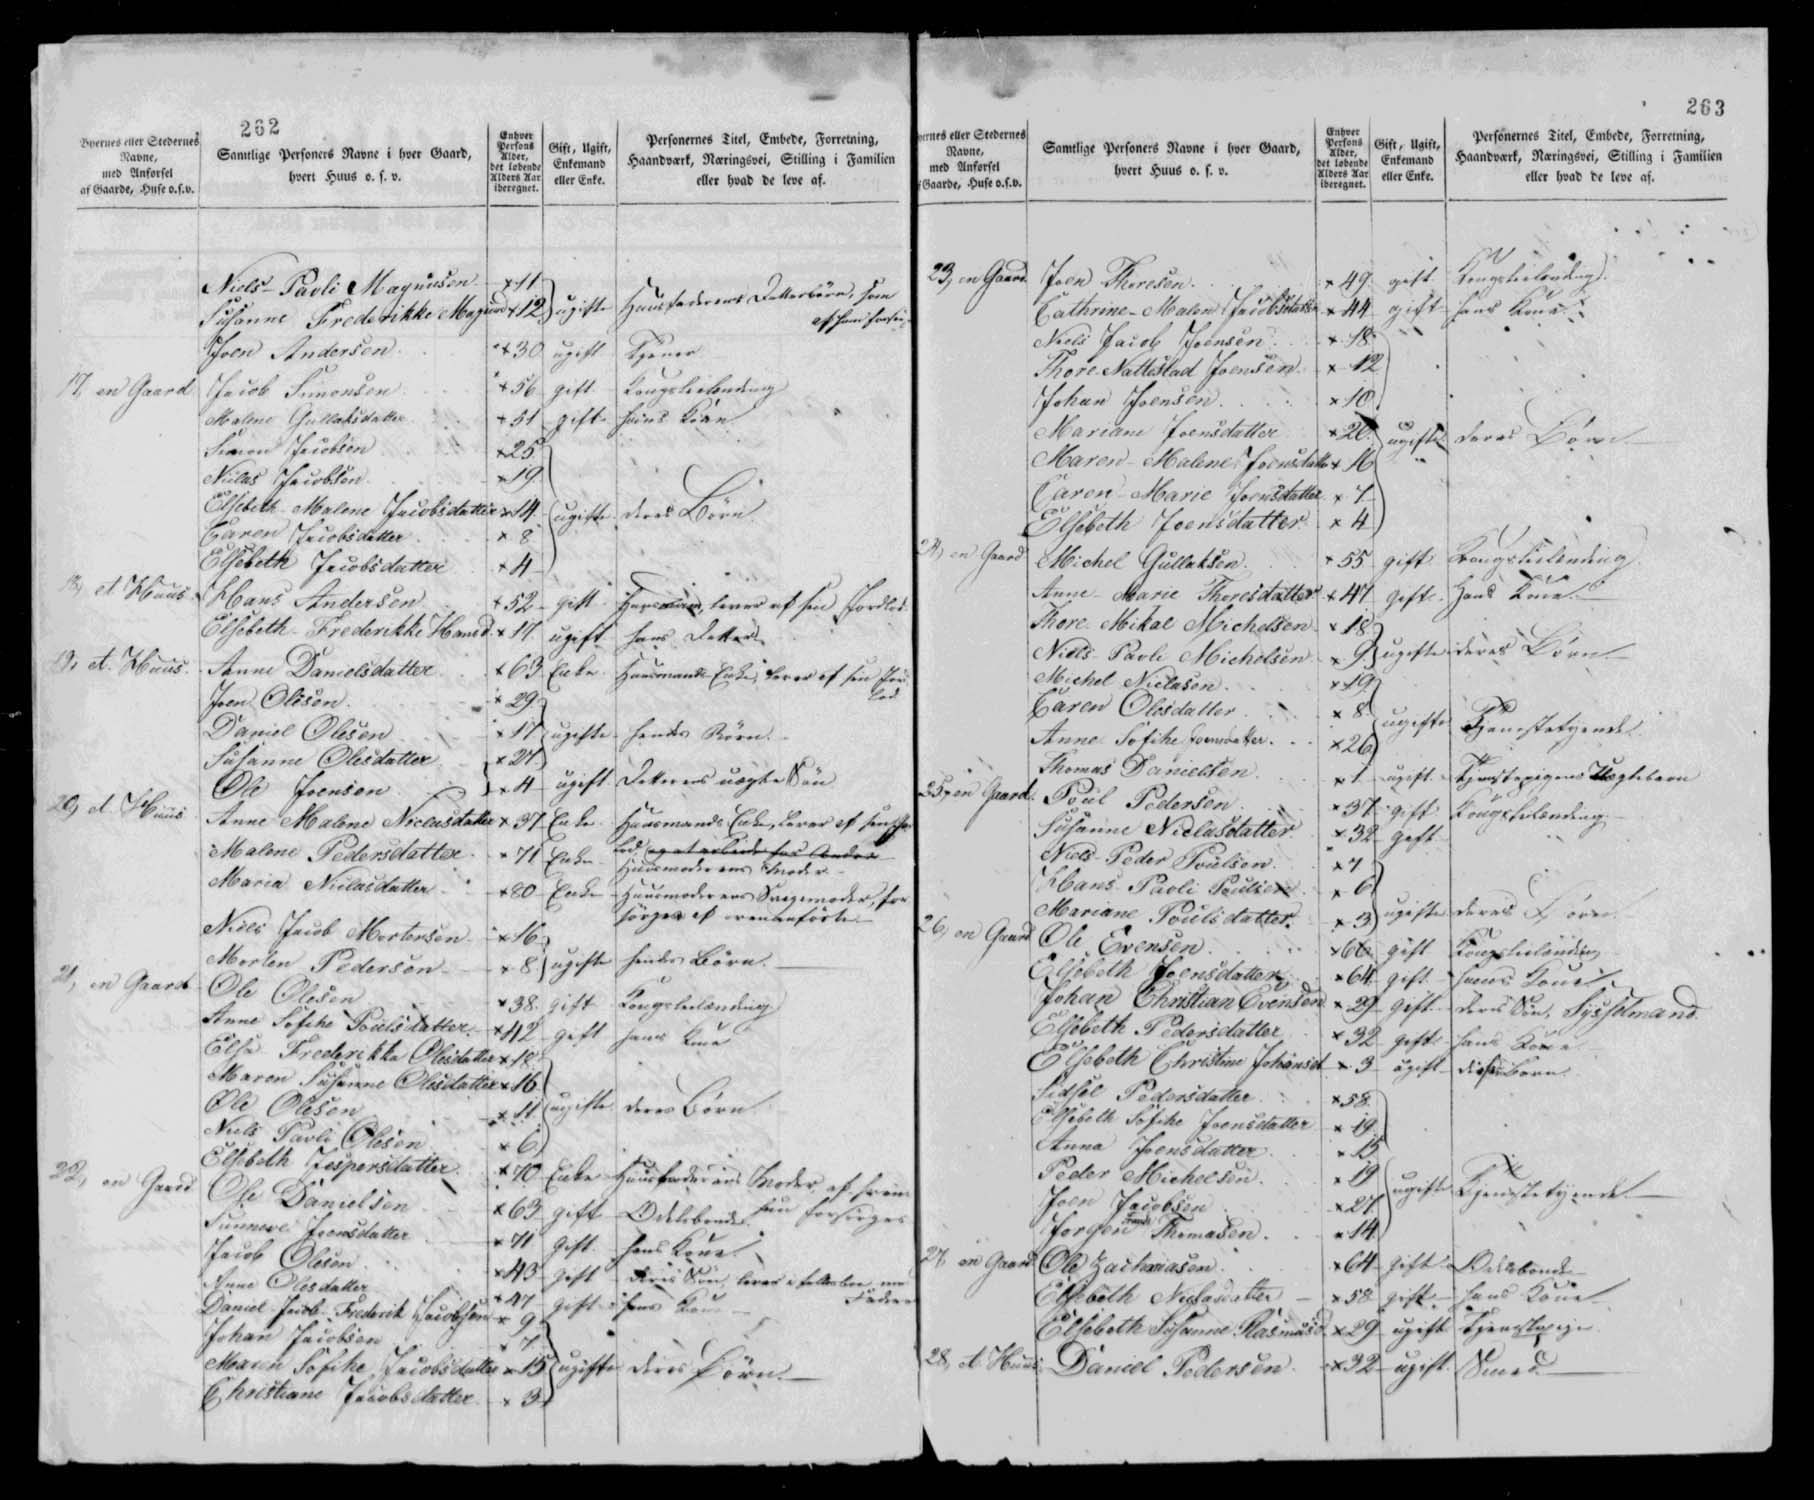 262
Byernes eller Stedernes Navne, med Anførsel af Gaarde, Huse o.s.v.
Samtlige Personers Navne i hver Gaard, hvert Huus o. s. v.
Enhver Persons Alder, det løbende Alders Aar iberegnet.
Gift, Ugift, Enkemand eller Enke.
Personernes Titel, Embede, Forretning, Haandværk, Næringsvei, Stilling i Familien eller hvad de leve af.
Niels Pavli Magnusen × 11
Susanne Frederikke Magnusd × 12 ugifte Huusfaderens Datterbørn, som af ham forsør
Joen Andersen × 30 ugift Tjener
17, en Gaard Jacob Simonsen × 56 gift Kongsfæstending
Malene Gullaksdatter × 51 gift hans Kone
Simon Jacobsen × 25
Niclas Jacobsen × 19
Elsebeth Malene Jacobsdatter × 14 ugifte deres Børn
Caren Jacobsdatter × 8
Elsebeth Jacobsdatter × 4
18, et Huus Hans Andersen × 52 gift lever af sin Jordlod
Elsebeth Frederikke Hansd × 17 ugift hans Datter
19, et Huus Anne Danielsdatter × 63 Enke Huusmands Enke, lever af sin Jordlod
Joen Olesen × 29
Daniel Olesen × 17 ugifte hendes Børn
Susanne Olesdatter × 27
Ole Joensen × 4 ugift Datterens uægte Søn
20, et Huus Anne Malene Niclasdatter × 37 Enke Huusmands Enke, lever af sin Jordlod, og at arbeide for Andre
Malene Pedersdatter × 71 Enke Huusmoderens Moder
Maria Niclasdatter × 80 Enke Huusmoderens Svigermoder, forsørges af ovenanførte
Niels Jacob Mortensen × 16
Morten Pedersen × 8 ugifte hendes Børn
21, en Gaard Ole Olesen × 38 gift Kongsfæstending
Anne Sofihe Poulsdatter × 42 gift hans Kone
Else Frederikke Olesdatter × 18
Maren Susanne Olesdatter × 16
Ole Olesen × 11 ugifte deres Børn
Niels Pavli Olesen × 6
Elsebeth Jespersdatter × 70 Enke Huusfaderens Moder, af hvem hun forsørges
22, en Gaard Ole Danielsen × 63 gift Odelsbonde
Sunneve Joensdatter × 71 gift hans Kone
Jacob Olesen × 43 gift deres Søn, lever i fælles med Faderen
Anne Olesdatter × 47 gift hans Kone
Daniel Jacob Frederik Jacobsen × 9
Johan Jacobsen × 7
Maren Sofihe Jacobsdatter × 15 ugifte deres Børn
Christiane Jacobsdatter × 3
263
Byernes eller Stedernes Navne, med Anførsel af Gaarde, Huse o.s.v.
Samtlige Personers Navne i hver Gaard, hvert Huus o. s. v.
Enhver Persons Alder, det løbende Alders Aar iberegnet.
Gift, Ugift, Enkemand eller Enke.
Personernes Titel, Embede, Forretning, Haandværk, Næringsvei, Stilling i Familien eller hvad de leve af.
23, en Gaard Joen Thoresen × 49 gift Kongsfæstending
Cathrine Malene Jacobsdatter × 44 gift hans Kone
Niels Jacob Joensen × 18
Thore Nattestad Joensen × 12
Johan Joensen × 10
Mariane Joensdatter × 20 ugifte deres Børn
Maren Malene Joensdatter × 16
Caren Marie Joensdatter × 7
Elsebeth Joensdatter × 4
24, en Gaard Michel Gullaksen × 55 gift Kongsfæstending
Anne Marie Thoresdatter × 47 gift Hans Kone
Thore Mikal Michelsen × 18
Niels Pavli Michelsen × 9 ugifte deres Børn
Michel Niclasen × 19
Caren Olesdatter × 8 ugifte Tjenestetyende
Anne Sofihe Joensdatter × 26
Thomas Danielsen × 1 ugift Tjenstepigens Uægtebarn
25, en Gaard Poul Pedersen × 37 gift Kongsfæstending
Susanne Niclasdatter × 32 gift
Niels Peder Poulsen × 7
Hans Pavli Poulsen × 6
Mariane Poulsdatter × 3 ugifte deres Børn
26, en Gaard Ole Evensen × 66 gift Kongsfæstending
Elsebeth Joensdatter × 64 gift hans Kone
Johan Christian Evensen × 29 gift deres Søn, Sysselmand
Elsebeth Pedersdatter × 32 gift hans Kone
Elsebeth Christine Johansd × 3 ugift disses Barn
Sidsel Pedersdatter × 58
Elsebeth Sofihe Joensdatter × 19
Anna Joensdatter × 15
Peder Michelsen × 19 ugifte Tjenestetyende
Joen Jacobsen × 27
Jorgen Frants Thomasen × 14
27, en Gaard Ole Zachariasen × 64 gift Odelsbonde
Elsebeth Niclasdatter × 58 gift hans Kone
Elsebeth Susanne Rasmusd × 29 ugift Tjenestepige
28, et Huus Daniel Pedersen × 32 ugift Smed